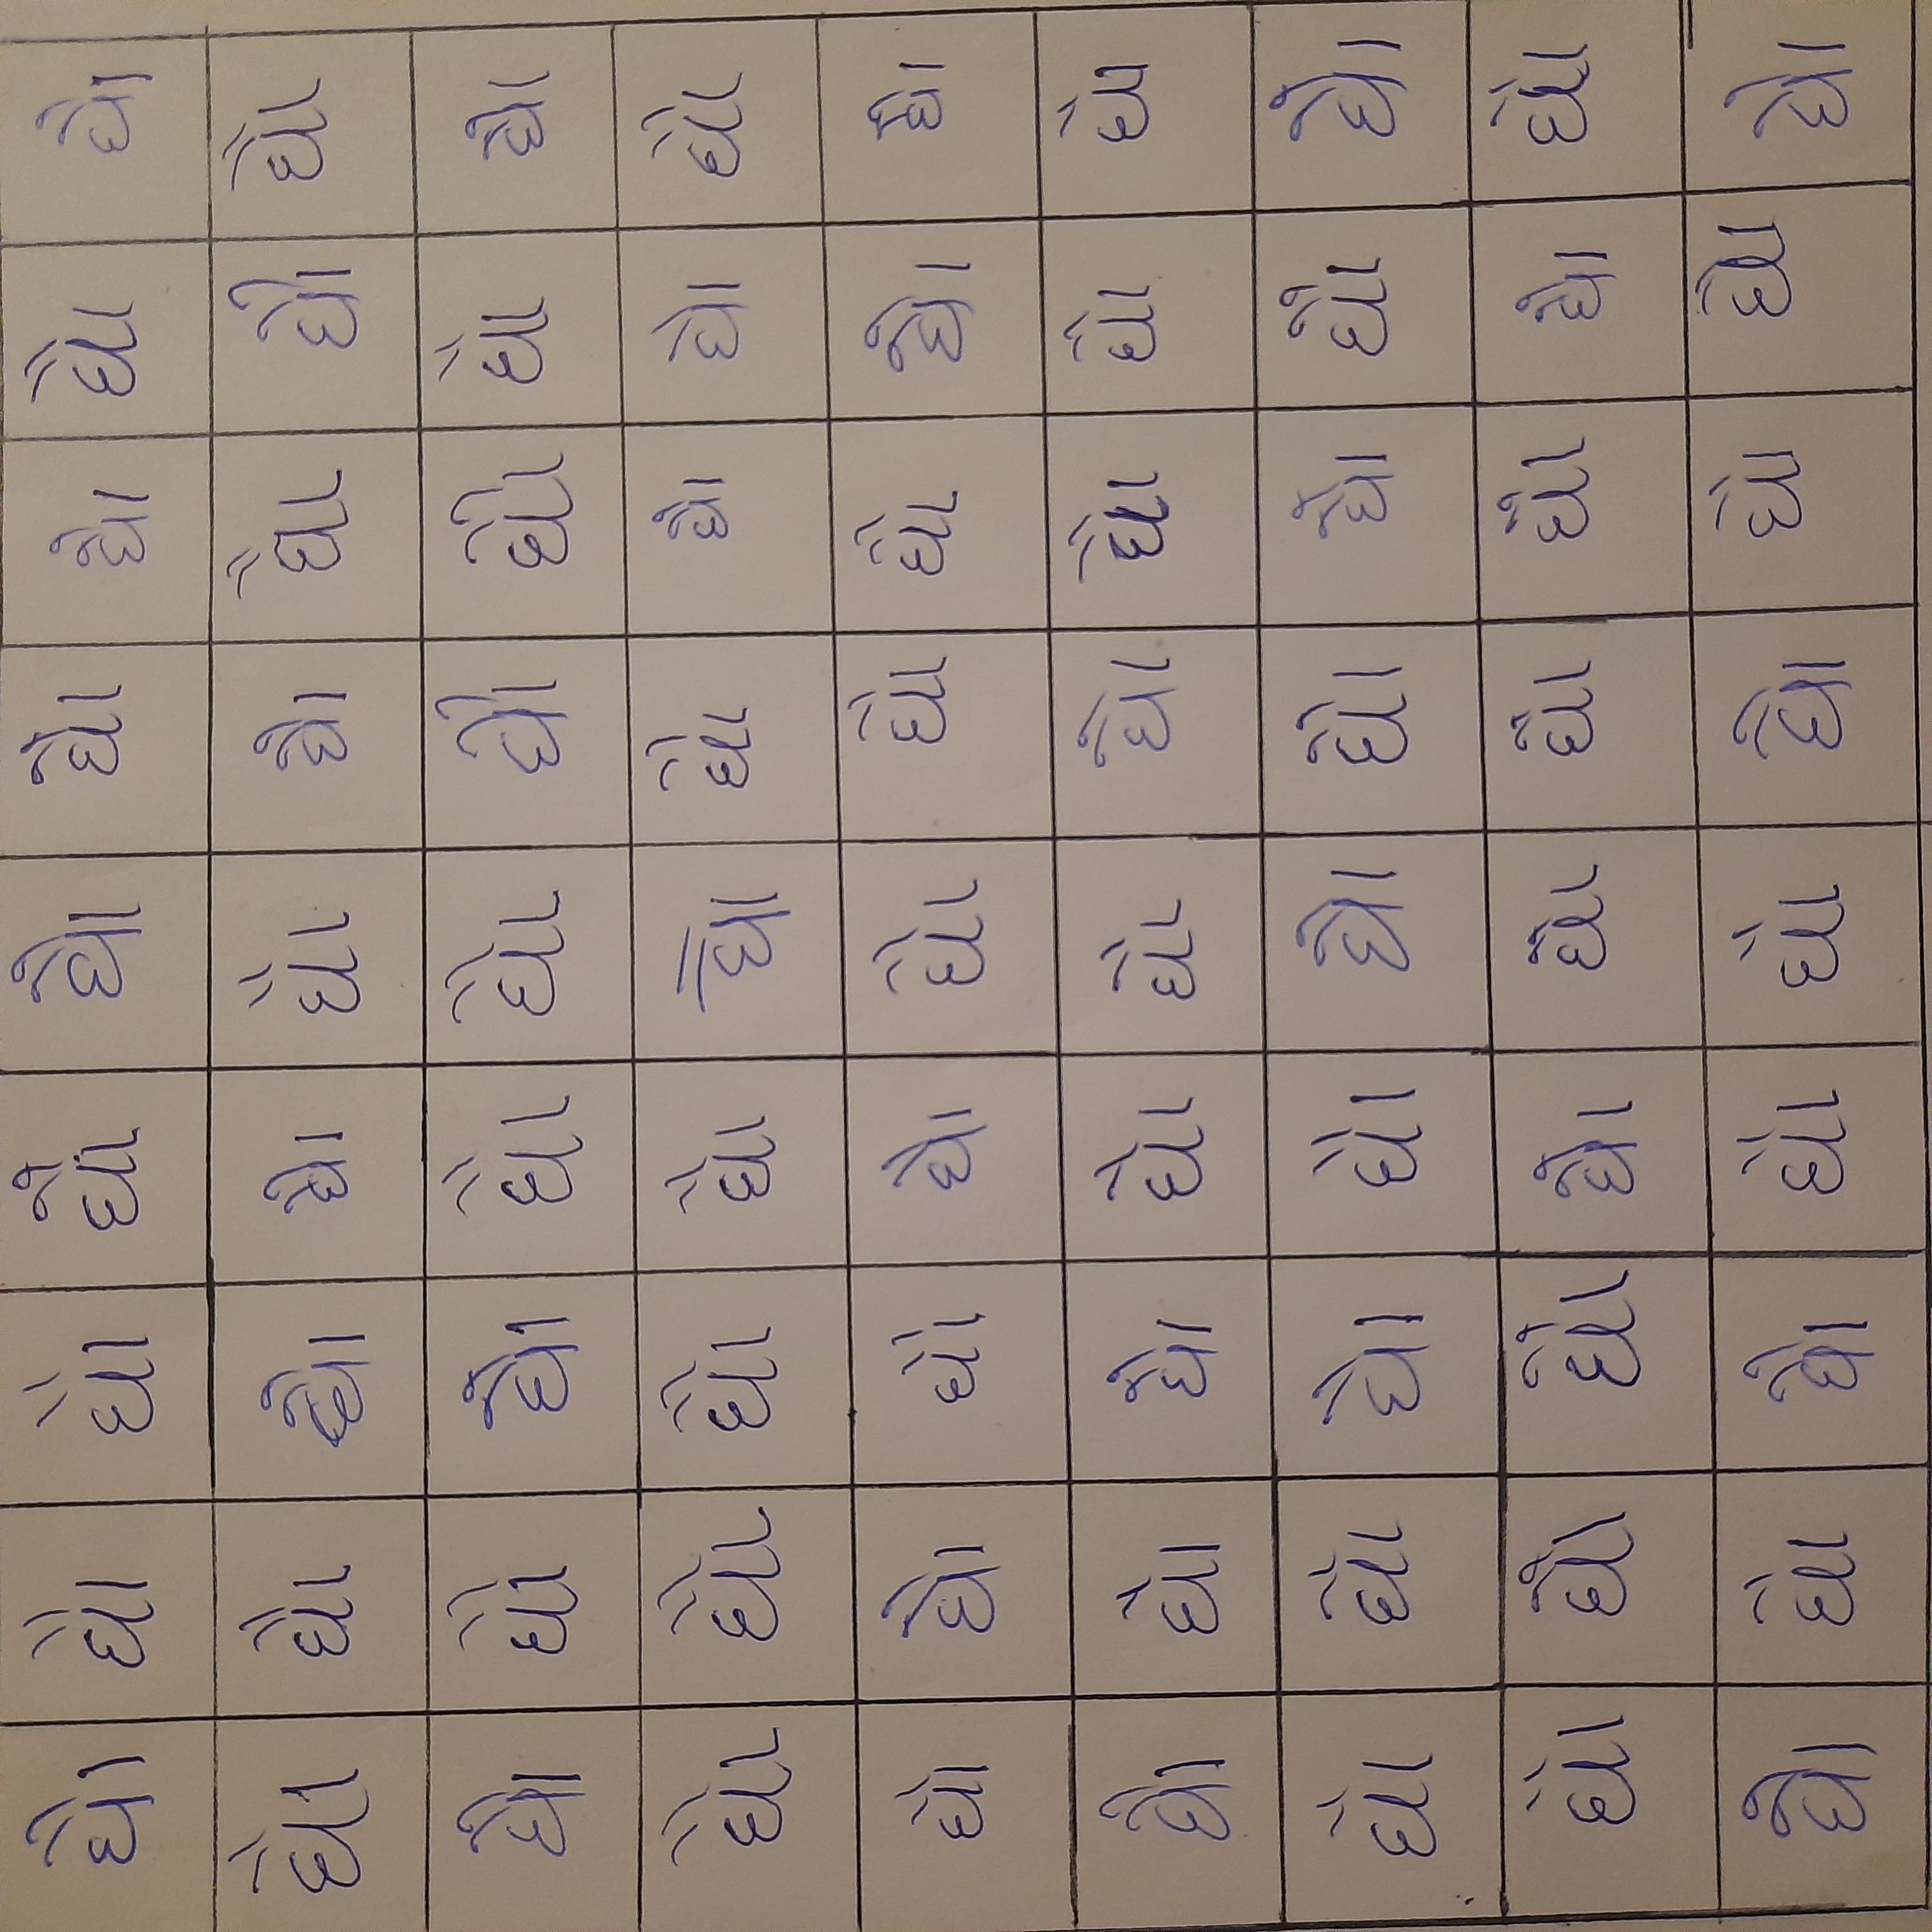 ઘૌ ઘૌ ઘૌ ઘૌ ઘૌ ઘૌ ઘૌ ઘૌ ઘૌ
ઘૌ ઘૌ ઘૌ ઘૌ ઘૌ ઘૌ ઘૌ ઘૌ ઘૌ
ઘૌ ઘૌ ઘૌ ઘૌ ઘૌ ઘૌ ઘૌ ઘૌ ઘૌ
ઘૌ ઘૌ ઘૌ ઘૌ ઘૌ ઘૌ ઘૌ ઘૌ ઘૌ
ઘૌ ઘૌ ઘૌ ઘૌ ઘૌ ઘૌ ઘૌ ઘૌ ઘૌ
ઘૌ ઘૌ ઘૌ ઘૌ ઘૌ ઘૌ ઘૌ ઘૌ ઘૌ
ઘૌ ઘૌ ઘૌ ઘૌ ઘૌ ઘૌ ઘૌ ઘૌ ઘૌ
ઘૌ ઘૌ ઘૌ ઘૌ ઘૌ ઘૌ ઘૌ ઘૌ ઘૌ
ઘૌ ઘૌ ઘૌ ઘૌ ઘૌ ઘૌ ઘૌ ઘૌ ઘૌ